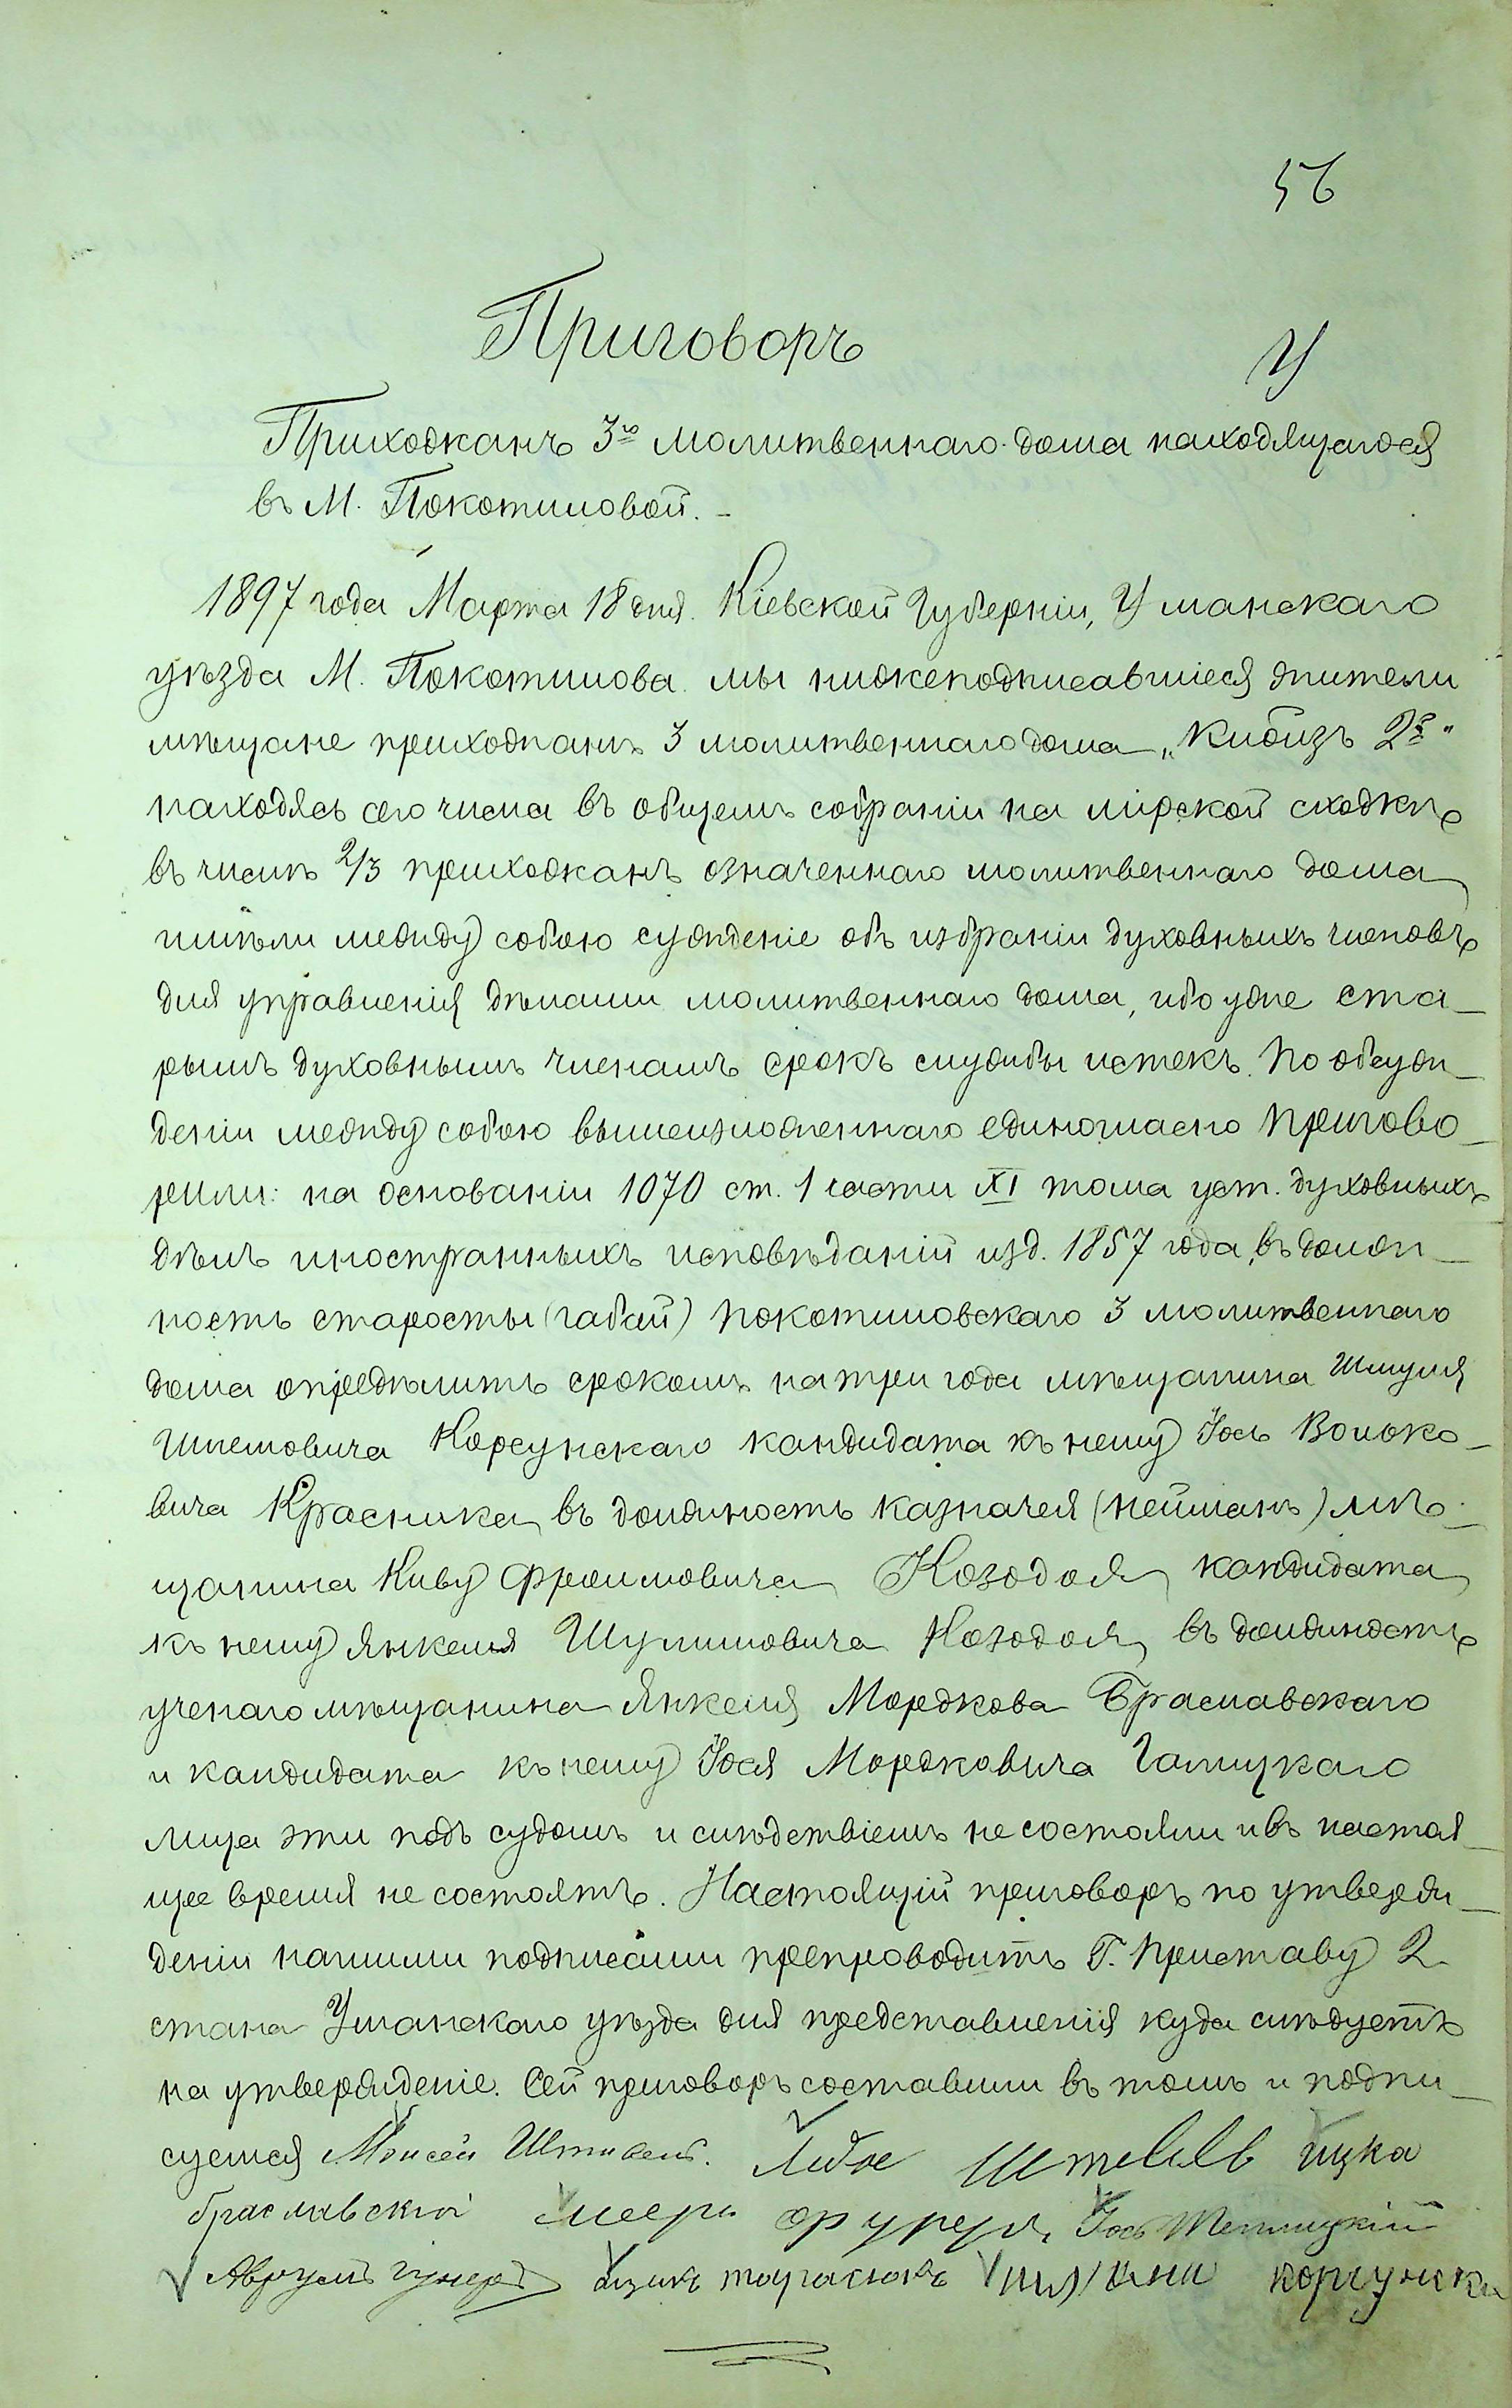 56
Приговоръ
У
Прихожанъ 3го молитвеннаго дома находящагося
въ М. Покотиловой. –
1897 года Марта 18 дня. Кіевской Губерніи, Уманскаго
уѣзда М. Покотилова мы нижеподписавшіеся жители
мѣщане прихожанъ 3 молитвеннаго дома „Кибизъ 2й“
находясь сего числа въ общемъ собраніи на мірской сходкѣ
въ числѣ 2/3 прихожанъ означеннаго молитвеннаго дома
имѣли между собою сужденіе объ избраніи духовныхъ членовъ
для управленія дѣлами молитвеннаго дома, ибо уже ста–
рымъ духовнымъ членамъ срокъ службы истекъ. По обсуж–
деніи между собою вышеизложеннаго единогласно Пригово–
рили: на основаніи 1070 ст. 1 части XI тома уст. духовныхъ
дѣлъ иностранныхъ исповѣданій изд. 1857 года, въ долж–
ность старосты (габай) Покотиловскаго 3 молитвеннаго
дома опредѣлить срокомъ на три года мѣщанина Шмуля
Шлемовича Корсунскаго кандидата къ нему Іось Волько–
вича Красника въ должность казначея (нейманъ) мѣ–
щанина Киву Фроимовича Козодоя кандидата
къ нему Янкеля Шулимовича Козодоя, въ должность
ученаго мѣщанина Янкеля Мордкова Браславскаго
и кандидата къ нему Іося Мордковича Галицкаго
лица эти подъ судомъ и слѣдствіемъ не состояли и въ настоя–
щее время не состоятъ. Настоящій приговоръ по утверж–
деніи нашими подписями препроводить Г. Приставу 2
стана Уманскаго уѣзда для представленія куда слѣдуетъ
на утвержденіе. Сей приговоръ составили въ томъ и подпи–
суемся Моисей Штивель. Лидя Штивель ицка
браславскій мееръ фурер Іось Теплицкій
Аврумъ ицикъ тарасюкъ корсунски